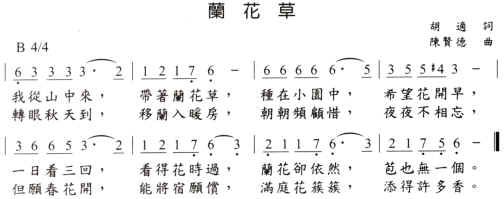 蘭花草
胡適 詞
B 4/4
陳賢德 曲
6 3 3 3 3· 2 | 1 2 1 7 6 – | 6 6 6 6 6· 5 | 3 5 5 #4 3 –
我從山中來， 帶著蘭花草， 種在小園中， 希望花開早，
轉眼秋天到， 移蘭入暖房， 朝朝頻顧惜， 夜夜不相忘，
3 6 6 5 3· 2 | 1 2 1 7 6 3 | 3 1 1 7 6· 3 | 2 1 7 5 6 –
一日看三回， 看得花時過， 蘭花卻依然， 苞也無一個。
但願春花開， 能將宿願償， 滿庭花簇簇， 添得許多香。